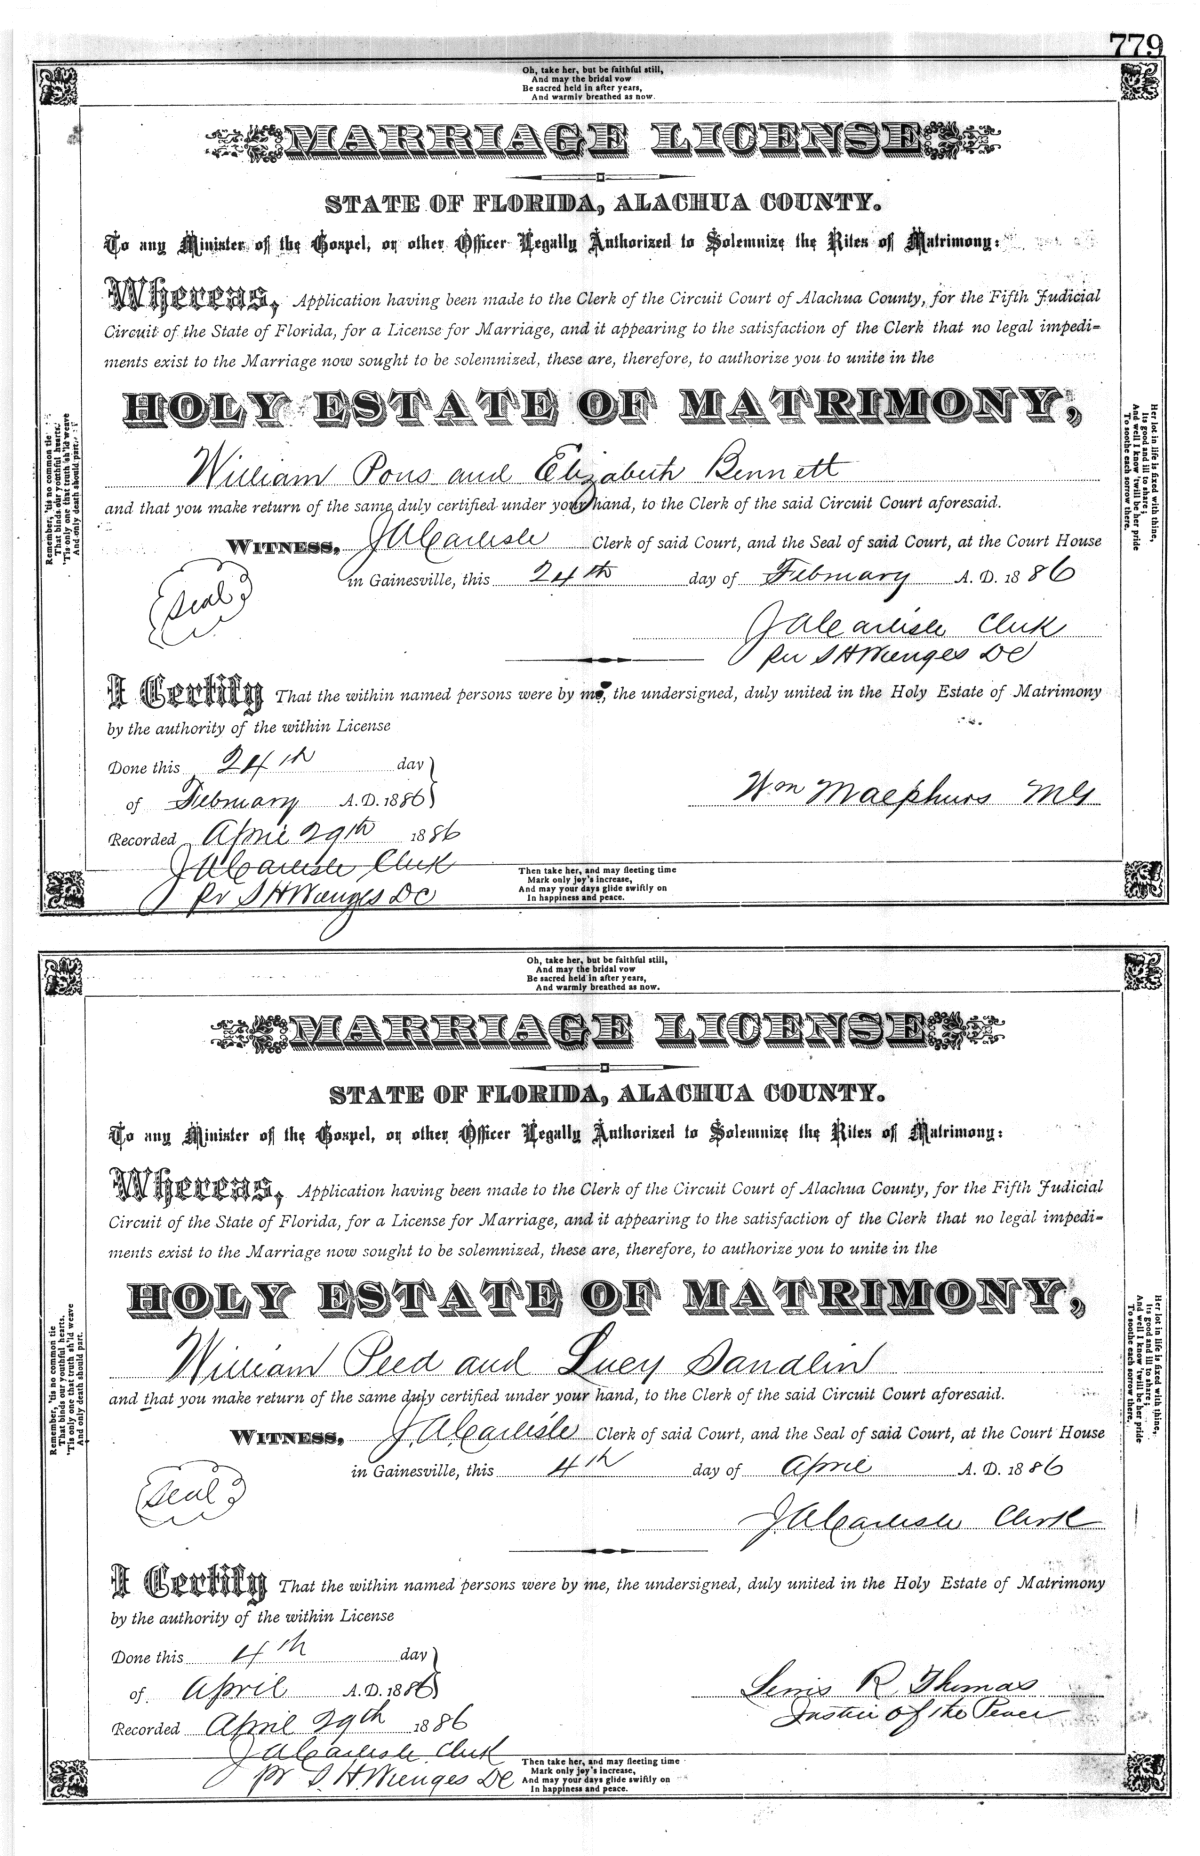 779
Oh, take her, but be faithful still,
And may the bridal vow
Be sacred held in after years,
And warmly breathed as now.
MARRIAGE LICENSE
STATE OF FLORIDA, ALACHUA COUNTY.
To any Minister of the Gospel, or other Officer Legally Authorized to Solemnize the Rites of Matrimony:
Whereas, Application having been made to the Clerk of the Circuit Court of Alachua County, for the Fifth Judicial
Circuit of the State of Florida, for a License for Marriage, and it appearing to the satisfaction of the Clerk that no legal impedi-
ments exist to the Marriage now sought to be solemnized, these are, therefore, to authorize you to unite in the
HOLY ESTATE OF MATRIMONY,
William Pons and Elizabeth Bennett
and that you make return of the same duly certified under your hand, to the Clerk of the said Circuit Court aforesaid.
WITNESS, J A Carlisle Clerk of said Court, and the Seal of said Court, at the Court House
in Gainesville, this 24th day of February A. D. 1886
Seal
J A Carlisle Clerk
pr S H Wienges DC
I Certify That the within named persons were by me, the undersigned, duly united in the Holy Estate of Matrimony
by the authority of the within License
Done this 24th day
of February A.D. 1886
Wm MG
Recorded April 29th 1886
J A Carlisle Clerk
pr S H Wienges DC
Remember, 'tis no common tie
That binds our youthful hearts,
'Tis only one that truth sh'ld weave
And only death should part.
Her lot in life is fixed with thine,
Its good and ill to share;
And well I know 'twill be her pride
To soothe each sorrow there.
Then take her, and may fleeting time
Mark only joy's increase,
And may your days glide swiftly on
In happiness and peace.
Oh, take her, but be faithful still,
And may the bridal vow
Be sacred held in after years,
And warmly breathed as now.
MARRIAGE LICENSE
STATE OF FLORIDA, ALACHUA COUNTY.
To any Minister of the Gospel, or other Officer Legally Authorized to Solemnize the Rites of Matrimony:
Whereas, Application having been made to the Clerk of the Circuit Court of Alachua County, for the Fifth Judicial
Circuit of the State of Florida, for a License for Marriage, and it appearing to the satisfaction of the Clerk that no legal impedi-
ments exist to the Marriage now sought to be solemnized, these are, therefore, to authorize you to unite in the
HOLY ESTATE OF MATRIMONY,
William Peed and Lucy Sandlin
and that you make return of the same duly certified under your hand, to the Clerk of the said Circuit Court aforesaid.
WITNESS, J. A. Carlisle Clerk of said Court, and the Seal of said Court, at the Court House
in Gainesville, this 4th day of April A. D. 1886
Seal
J. A Carlisle Clerk
I Certify That the within named persons were by me, the undersigned, duly united in the Holy Estate of Matrimony
by the authority of the within License
Done this 4th day
of April A.D. 1886
R Thomas
Justice of the Peace
Recorded April 29th 1886
J A Carlisle Clerk
pr S. H. Wienges DC
Remember, 'tis no common tie
That binds our youthful hearts.
'Tis only one that truth sh'ld weave
And only death should part.
Her lot in life is fixed with thine,
Its good and ill to share;
And well I know 'twill be her pride
To soothe each sorrow there.
Then take her, and may fleeting time
Mark only joy's increase,
And may your days glide swiftly on
In happiness and peace.